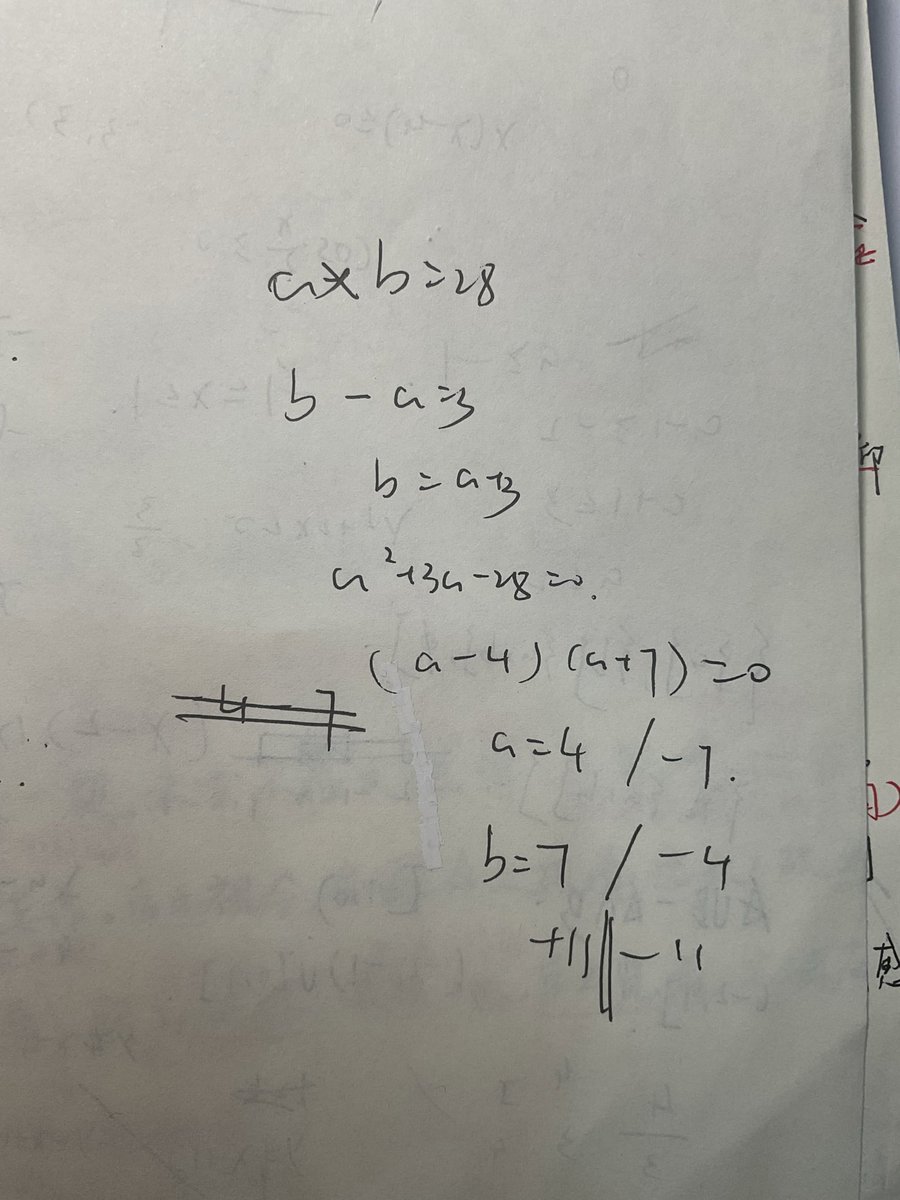 a×b=28
b-a=3
b=a+3
a²+3a-28=0.
(a-4)(a+7)=0
4 7
a=4 / -7.
b=7 / -4
+11 || -11
印